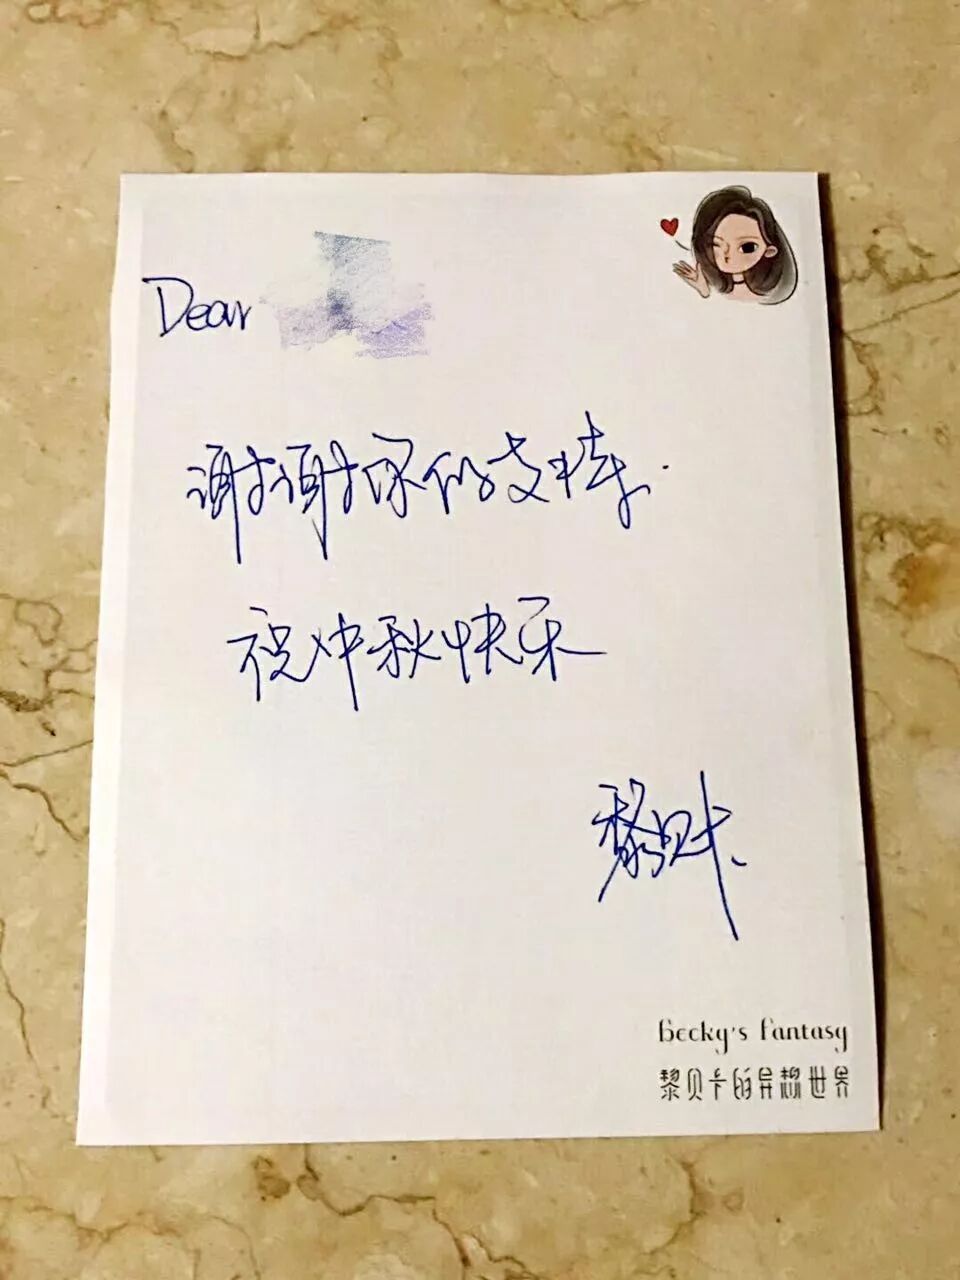 Dear
谢谢你的支持.
祝中秋快乐
黎贝卡
Becky's Fantasy
黎贝卡的异想世界